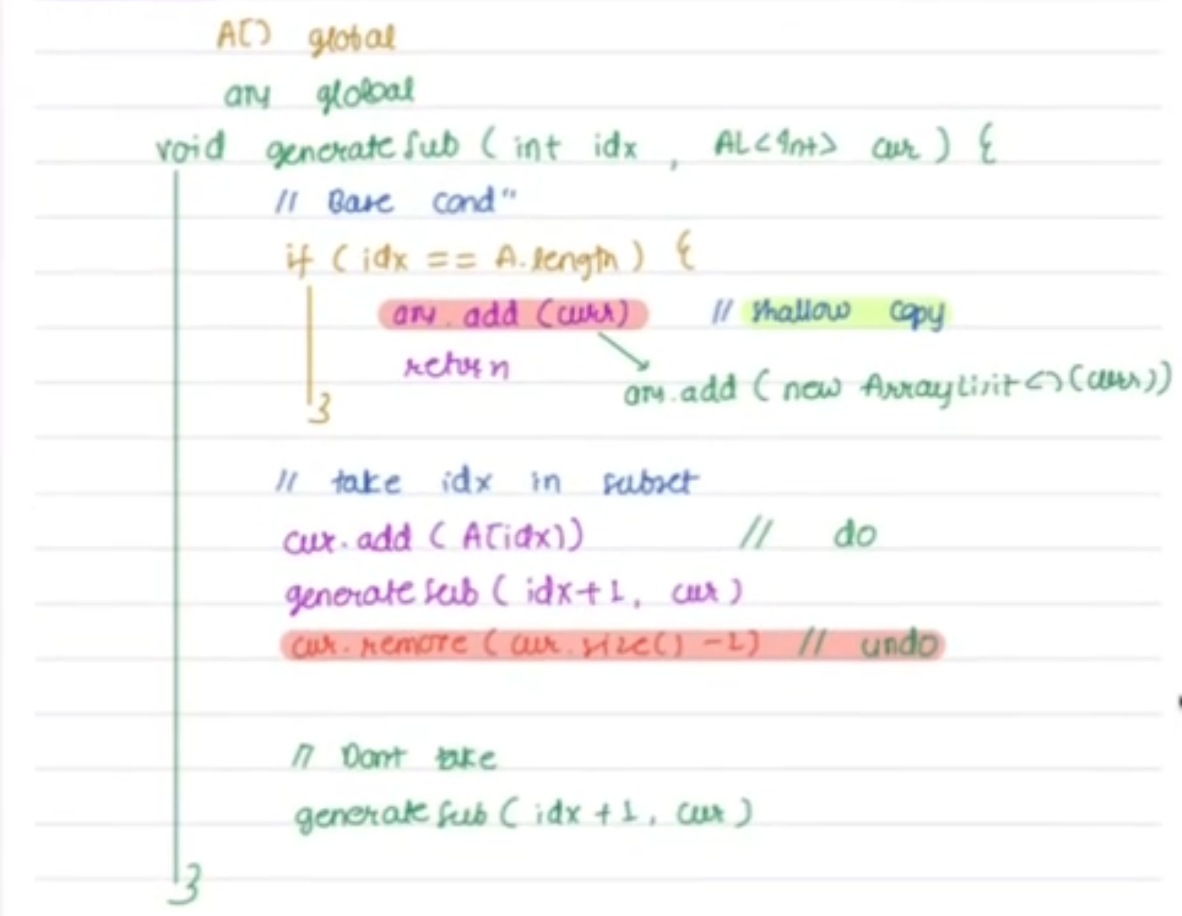 A[] global
ans global
void generateSub ( int idx , AL<Int> cur ) {
// Base cond"
if ( idx == A.length ) {
ans.add (curr) // shallow copy
return
ans.add ( new ArrayList<>(curr))
}
// take idx in subset
cur.add ( A[idx]) // do
generateSub ( idx+1, cur )
cur.remove ( cur.size() -1) // undo
// Dont take
generateSub ( idx +1, cur )
}